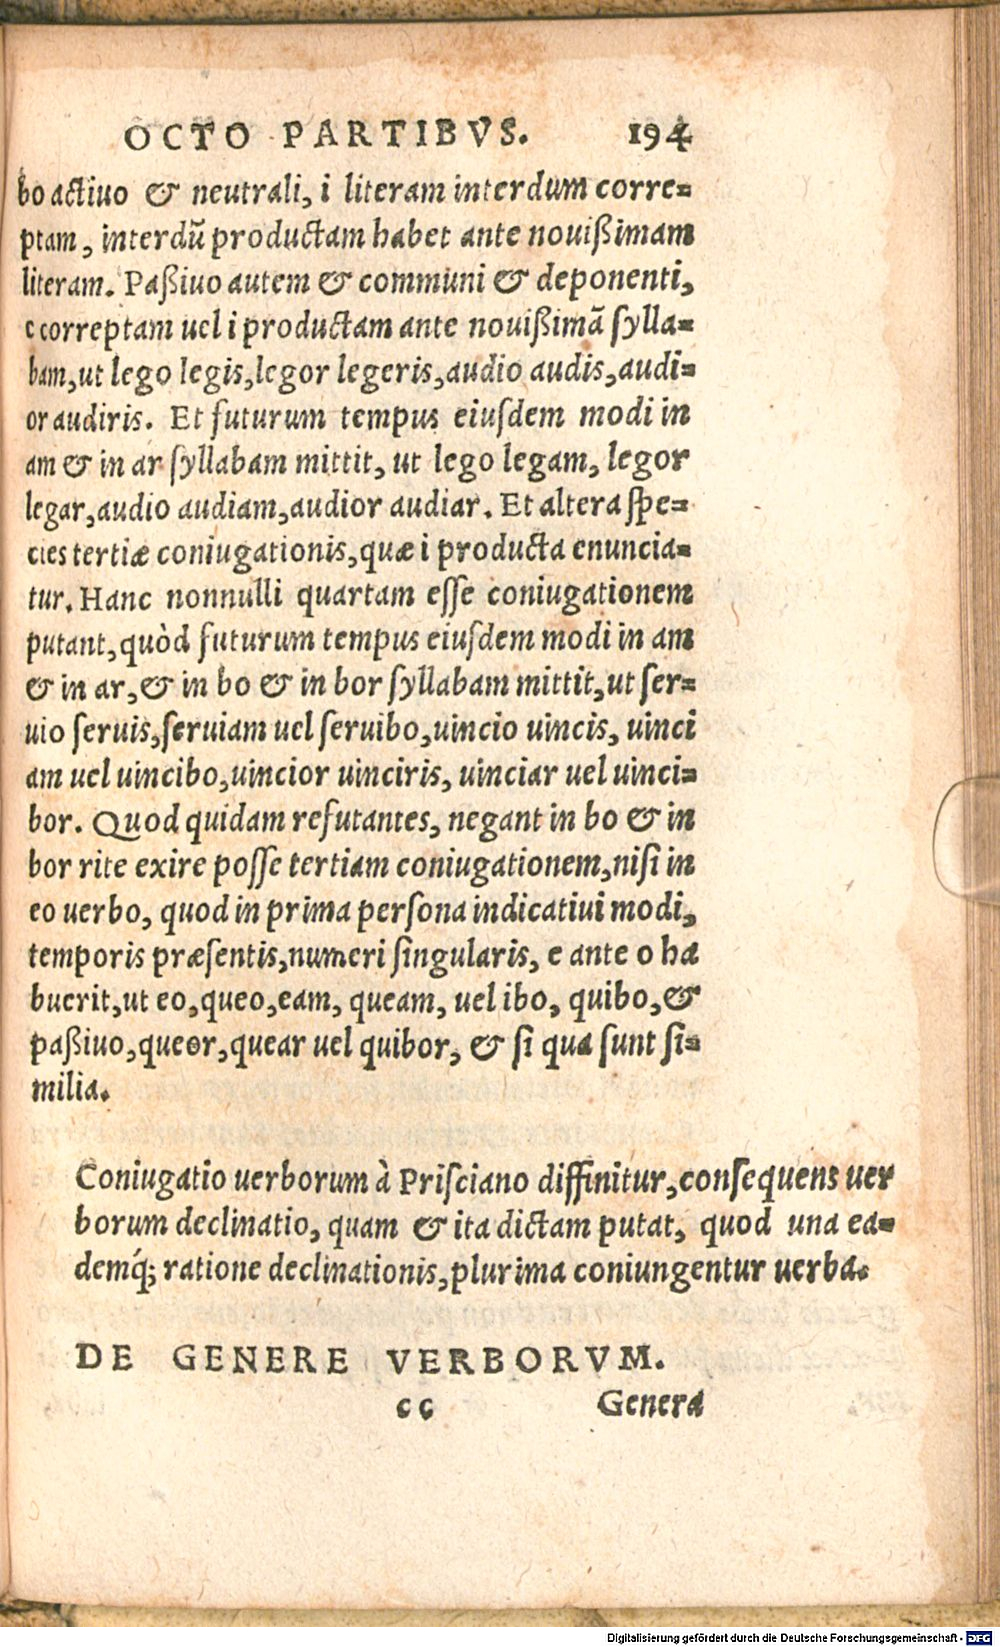 OCTO PARTIBVS. 194
bo actiuo & neutrali, i literam interdum corre=
ptam, interdũ productam habet ante nouißimam
literam. Paßiuo autem & communi & deponenti,
e correptam uel i productam ante nouißimã sylla=
bam,ut lego legis,legor legeris,audio audis,audi=
or audiris. Et futurum tempus eiusdem modi in
am & in ar syllabam mittit, ut lego legam, legor
legar,audio audiam,audior audiar. Et altera spe=
cies tertiæ coniugationis,quæ i producta enuncia=
tur. Hanc nonnulli quartam esse coniugationem
putant,quòd futurum tempus eiusdem modi in am
& in ar,& in bo & in bor syllabam mittit,ut ser=
uio seruis,seruiam uel seruibo,uincio uincis, uinci
am uel uincibo,uincior uinciris, uinciar uel uinci=
bor. Quod quidam refutantes, negant in bo & in
bor rite exire posse tertiam coniugationem,nisi in
eo uerbo, quod in prima persona indicatiui modi,
temporis præsentis,numeri singularis, e ante o ha
buerit,ut eo,queo,eam, queam, uel ibo, quibo,&
paßiuo,queor,quear uel quibor, & si qua sunt si=
milia.
Coniugatio uerborum à Prisciano diffinitur,consequens uer
borum declinatio, quam & ita dictam putat, quod una ea=
demq́; ratione declinationis,plurima coniungentur uerba.
DE GENERE VERBORVM.
cc Genera
Digitalisierung gefördert durch die Deutsche Forschungsgemeinschaft - DFG